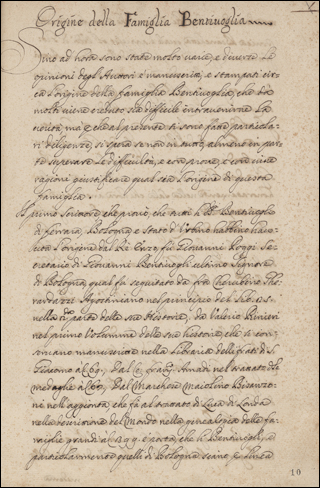 Origine della Famiglia Bentivoglia
Sino ad hora sono state molto varie, e diverse le
opinioni degl'Auttori e manuscritti, e stampati cir-
ca l'origine della famiglia Bentivoglia, che da
molti viene creduto sia difficile intravenirne la
novità, mà, che al presente si sono fatte particola-
ri diligenze, si spera se non in tutto, almeno in par-
te superare le difficultà, e con prove, e con vive
ragioni giustificare qual sia l'origine di questa
famiglia.
Il primo Scrittore che provò, che tutti li Bentivogli
di Ferrara, Bologna, e Stato d'Urbino habbino have-
uta l'origine dal Rè Enzo fu Giovanni Se-
cretario di Giovanni Bentivogli ultimo Signore
di Bologna, qual fù seguitato da frà Cherubino Ghi-
rardazzi Agostiniano nel principio del
nella parte della sua Historia, da Valerio Rinieri
nel primo Volumme delle sue historie, che si con-
servano manuscritte nella Libraria delli frati di S.
Giacomo al dal nel trattato
medaglie al Dal Marchese Maiolino Bisaccio-
ne nell'aggionta, che fà al trattato di Luca di Linda
nella descrizione del Mondo nella genealogia delle fa-
miglie grandi à e porta, che li Bentivogli, e
particolarmente quelli di Bologna
10